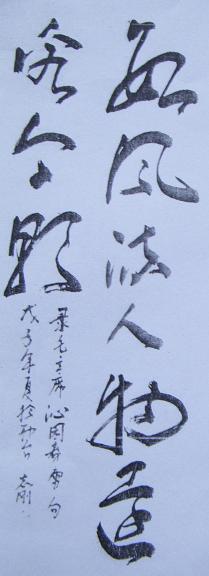 数风流人物还
看今朝
录毛主席沁园春雪句
戊子年夏於邢台 志刚